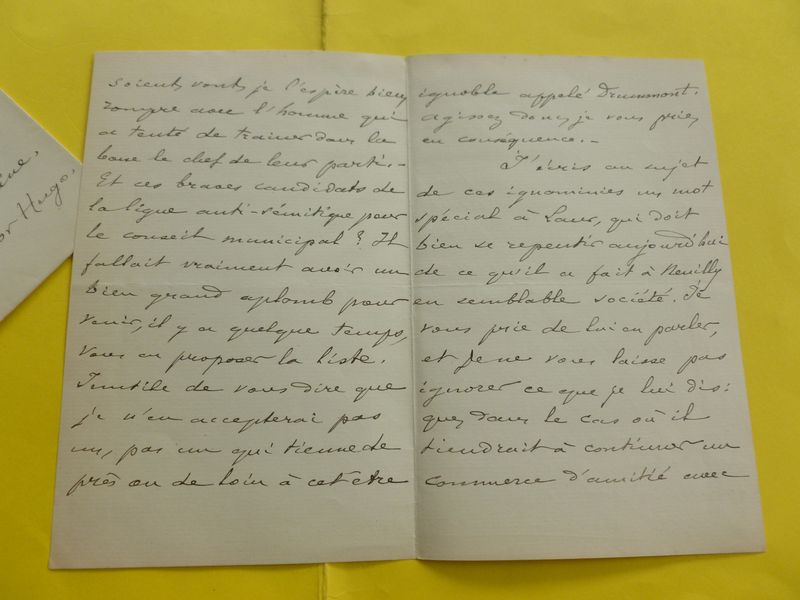 ine,
or Hugo,
soient, vont, je l'espère bien,
rompre avec l'homme qui
a tenté de trainer dans la
boue le chef de leur parti. -
Et ces braves candidats de
la ligue anti-sémitique pour
le conseil municipal? Il
fallait vraiment avoir un
bien grand aplomb pour
venir, il y a quelque temps,
vous en proposer la liste.
Inutile de vous dire que
je n'en accepterai pas
un, pas un qui tienne de
près ou de loin à cet être
ignoble appelé Drummont.
agissez donc, je vous prie,
en conséquence. -
J'écris au sujet
de ces ignominies un mot
spécial à Laur, qui doit
bien se repentir aujourd'hui
de ce qu'il a fait à Neuilly
en semblable société. Je
vous prie de lui en parler,
et je ne vous laisse pas
ignorer ce que je lui dis:
que, dans le cas où il
tiendrait à continuer un
commerce d'amitié avec